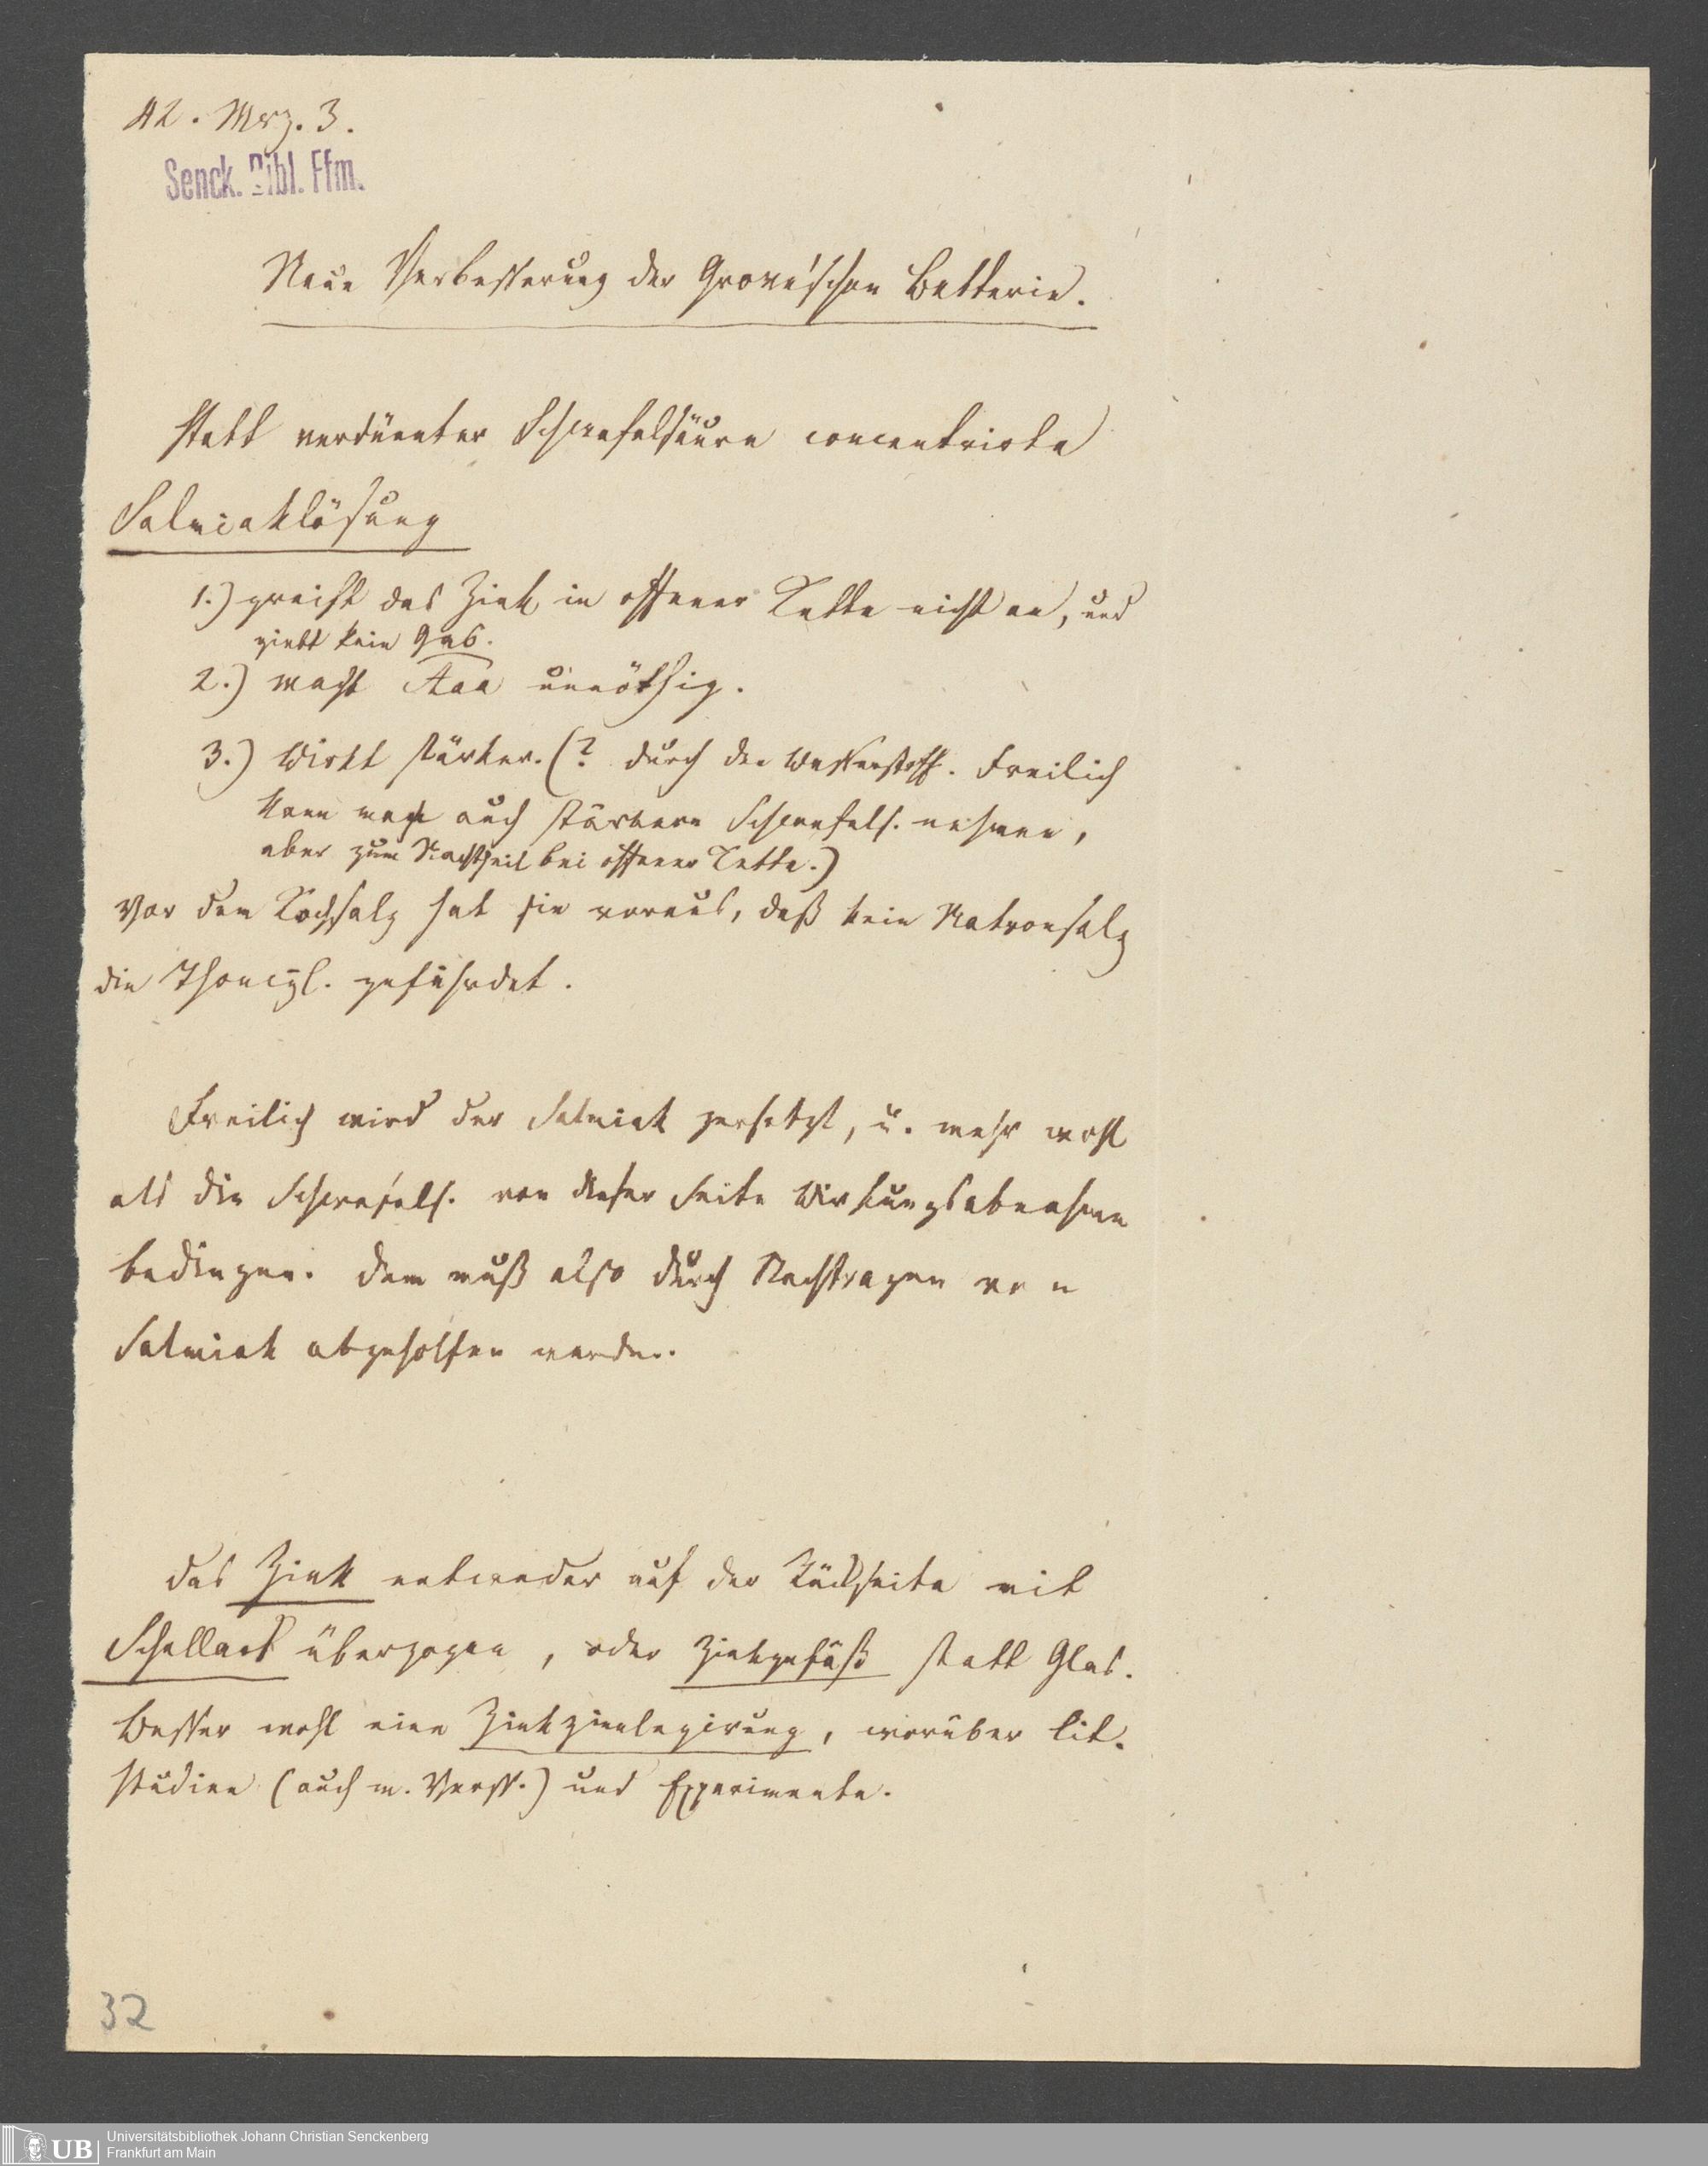 42. Mrz. 3.
Senck. Bibl. Ffm.
Neue Verbesserung der Grove'schen Batterie.
statt verdünnter Schwefelsäure concentrirte
Salmiaklösung
1.) greift das Zink in offener Kette nicht an, und
giebt kein Gas.
2.) macht unnöthig.
3.) Wirkt stärker. (? durch den Wasserstoff. Freilich
kann man auch stärkere Schwefels. nehmen,
aber zum Nachtheil bei offener Kette.)
Vor dem Kochsalz hat sie voraus, daß kein Natronsalz
die Thoncyl. gefährdet.
Freilich wird der Salmiak zersetzt, u. mehr wohl
als die Schwefels. von dieser Seite Wirkungsabnahme
bedingen. Dem muß also durch Nachtragen von
Salmiak abgeholfen werden.
Das Zink entweder auf der Rückseite mit
Schellack überzogen, oder Zinkgefäß statt Glas.
Besser wohl eine Zinkzinnlegirung, worüber Lit.
studien (auch m. Verss.) und Experimente.
32
UB
Universitätsbibliothek Johann Christian Senckenberg
Frankfurt am Main